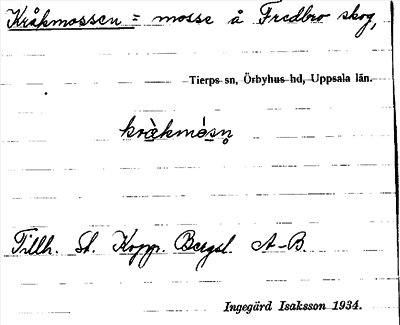 Kråkmossen = mosse å Fredbro skog,
Tierps sn, Örbyhus hd, Uppsala län.
krå̀kmósn̥
Tillh. St. Kopp. Bergsl. A-B.
Ingegärd Isaksson 1934.